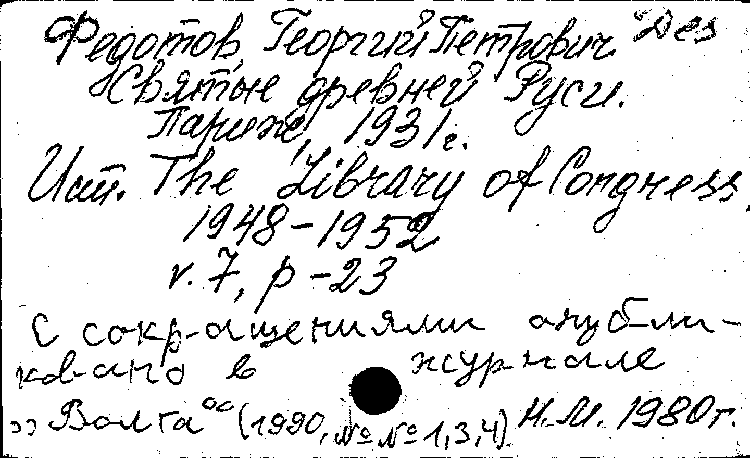 Федотов, Георгий Петрович Дез
Святые древней Руси.
Париж, 1931 г.
Ист. The Library of Congress.
1948-1952
v. 7, p-23
С сокращениями опубли-
ковано в журнале
"Волга" (1990, №№ 1,3,4). Н.М. 1980 г.